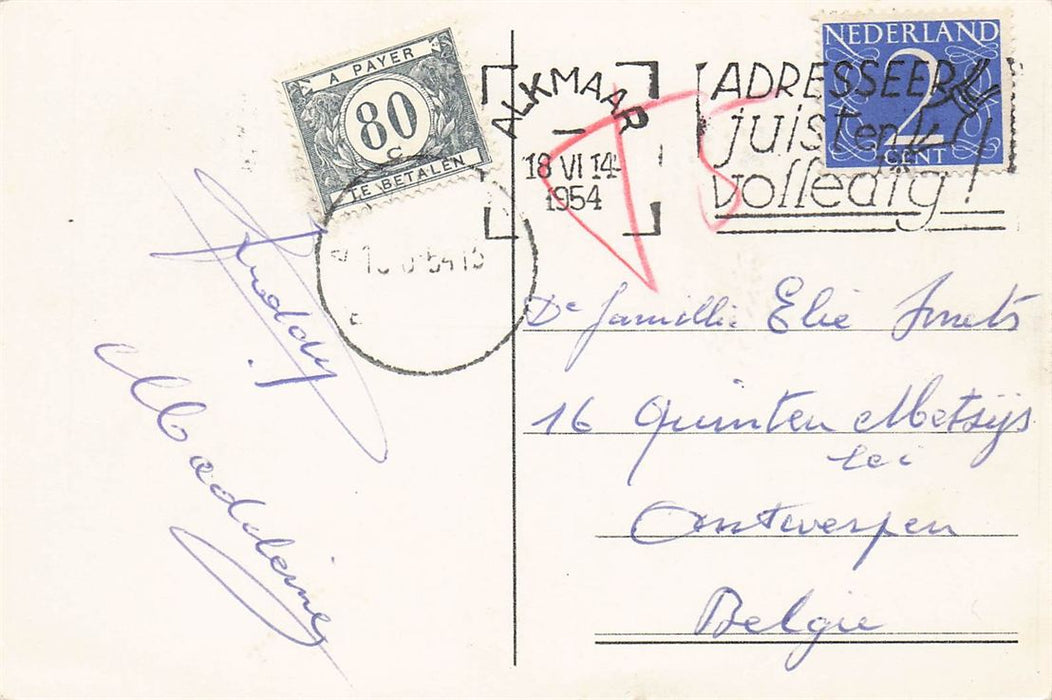 A PAYER
80
C
TE BETALEN
ALKMAAR
18 VI 14-
1954
ADRESSEER
juist en
volledig!
NEDERLAND
2
CENT
T
Freddy
Madeleine
De familie Elie
16 Quinten Metsijs
lei
Antwerpen
België